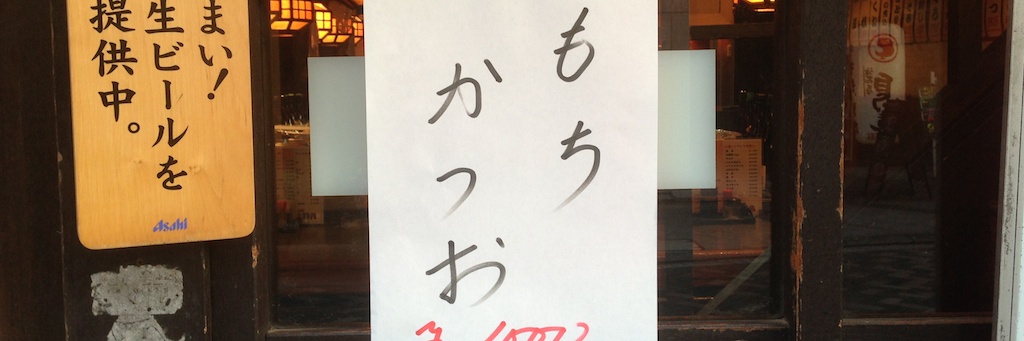 まい!
生ビールを
提供中。
Asahi
もち
かつお